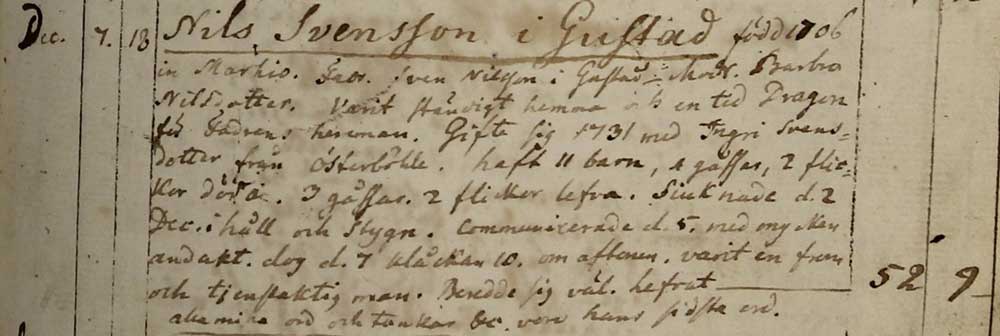 Dec. 7. 13 Nils Svensson i Gustad född 1706
in Martio. Fadr. Sven Nilsson i Gustad. Modr. Barbro
Nilsdotter. Varit ständigt hemma och en tid Dragon
för Fadrens hemman. Gifte sig 1731 med Ingri Svens-
dotter från Österböhle. haft 11 barn, 4 gåssar, 2 flic-
kor döda. 3 gåssar. 2 flickor lefva. Siuknade d. 2
Dec. i håll och Stygn. Communicerade d. 5. med mycken
andakt. dog d. 7 klåckan 10. om aftonen. varit en from
och tjenstaktig man. Beredde sig väl. 52 9
alla mina ord och tankar &c. voro hans sidsta ord.